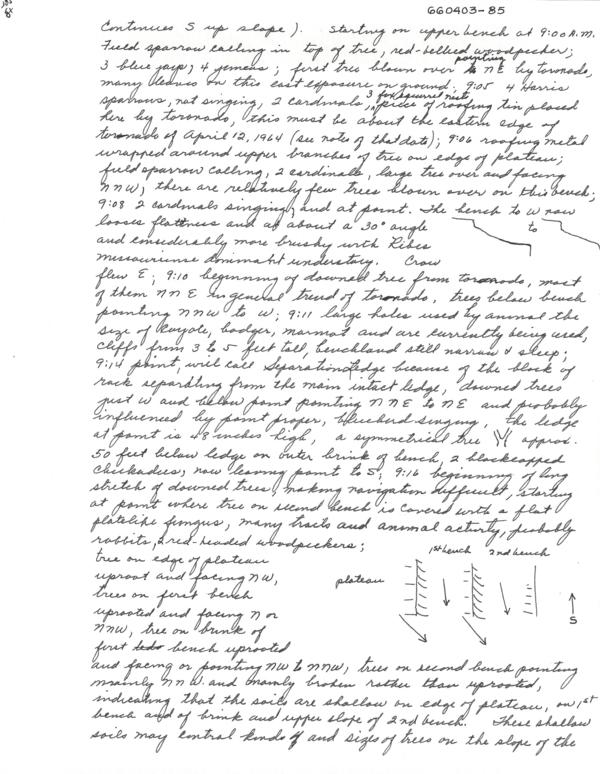 660403-85
Continues S up slope). Starting on upper bench at 9:00 A.M.
Field sparrow calling in top of tree, red-bellied woodpecker;
3 blue jays; 4 juncos; first tree blown over pointing to NE by toronado,
many leaves on this east exposure on ground; 9:05 4 Harris
sparrows, not singing, 2 cardinals, 3 fox squirrel nests, piece of roofing tin placed
here by toronado, this must be about the eastern edge of
toronado of April 12, 1964 (see notes of that date); 9:06 roofing metal
wrapped around upper branches of tree on edge of plateau;
field sparrow calling, 2 cardinals, large tree over and facing
NNW, there are relatively few trees blown over on this bench;
9:08 2 cardinals singing, and at point. The bench to W now
looses flattness and at about a 30° angle to
and considerably more brushy with Ribes
missouriense dominant understory. Crow
flew E; 9:10 beginning of downed tree from toronado, most
of them NNE in general trend of toronado, trees below bench
pointing NNW to W; 9:11 large holes used by animal the
size of coyote, badger, marmot and are currently being used,
cliffs from 3 to 5 feet tall, benchland still narrow & steep;
9:14 point, will call Separation Ledge because of the block of
rock separating from the main intact ledge, downed trees
just W and below point pointing NNE to NE and probably
influenced by point proper, bluebird singing, the ledge
at point is 48 inches high, a symmetrical tree approx.
50 feet below ledge on outer brink of bench, 2 blackcapped
chickadees, now leaving point to S; 9:16 beginning of long
stretch of downed trees, making navigation difficult, starting
at point where tree on second bench is covered with a flat
platelike fungus, many tracts and animal activity, probably
rabbits, 2 red-headed woodpeckers;
tree on edge of plateau
uproot and facing NW,
trees on first bench
uprooted and facing N or
NNW, tree on brink of
first bench uprooted
plateau 1st bench 2nd bench
S
and facing or pointing NW to NNW, trees on second bench pointing
mainly NNW and mainly broken rather than uprooted,
indicating that the soils are shallow on edge of plateau, on 1st
bench and of brink and upper slope of 2nd bench. These shallow
soils may control kinds of and sizes of trees on the slope of the